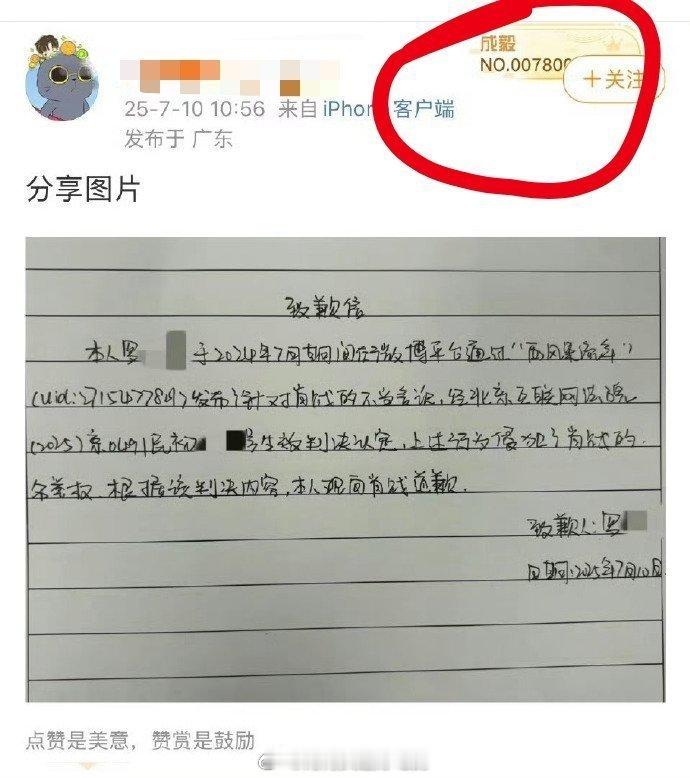 成毅
NO.007800
+关注
25-7-10 10:56 来自 iPhone客户端
发布于 广东
分享图片
致歉信
本人罗 于2024年7月期间在微博平台通过“西风
(uid:2715477847)发布了针对肖战的不当言论,经北京互联网法院
(2025)京0491民初 号生效判决认定,上述行为侵犯了肖战的
名誉权,根据该判决内容,本人现向肖战道歉.
致歉人:罗
日期:2025年7月10日.
点赞是美意,赞赏是鼓励